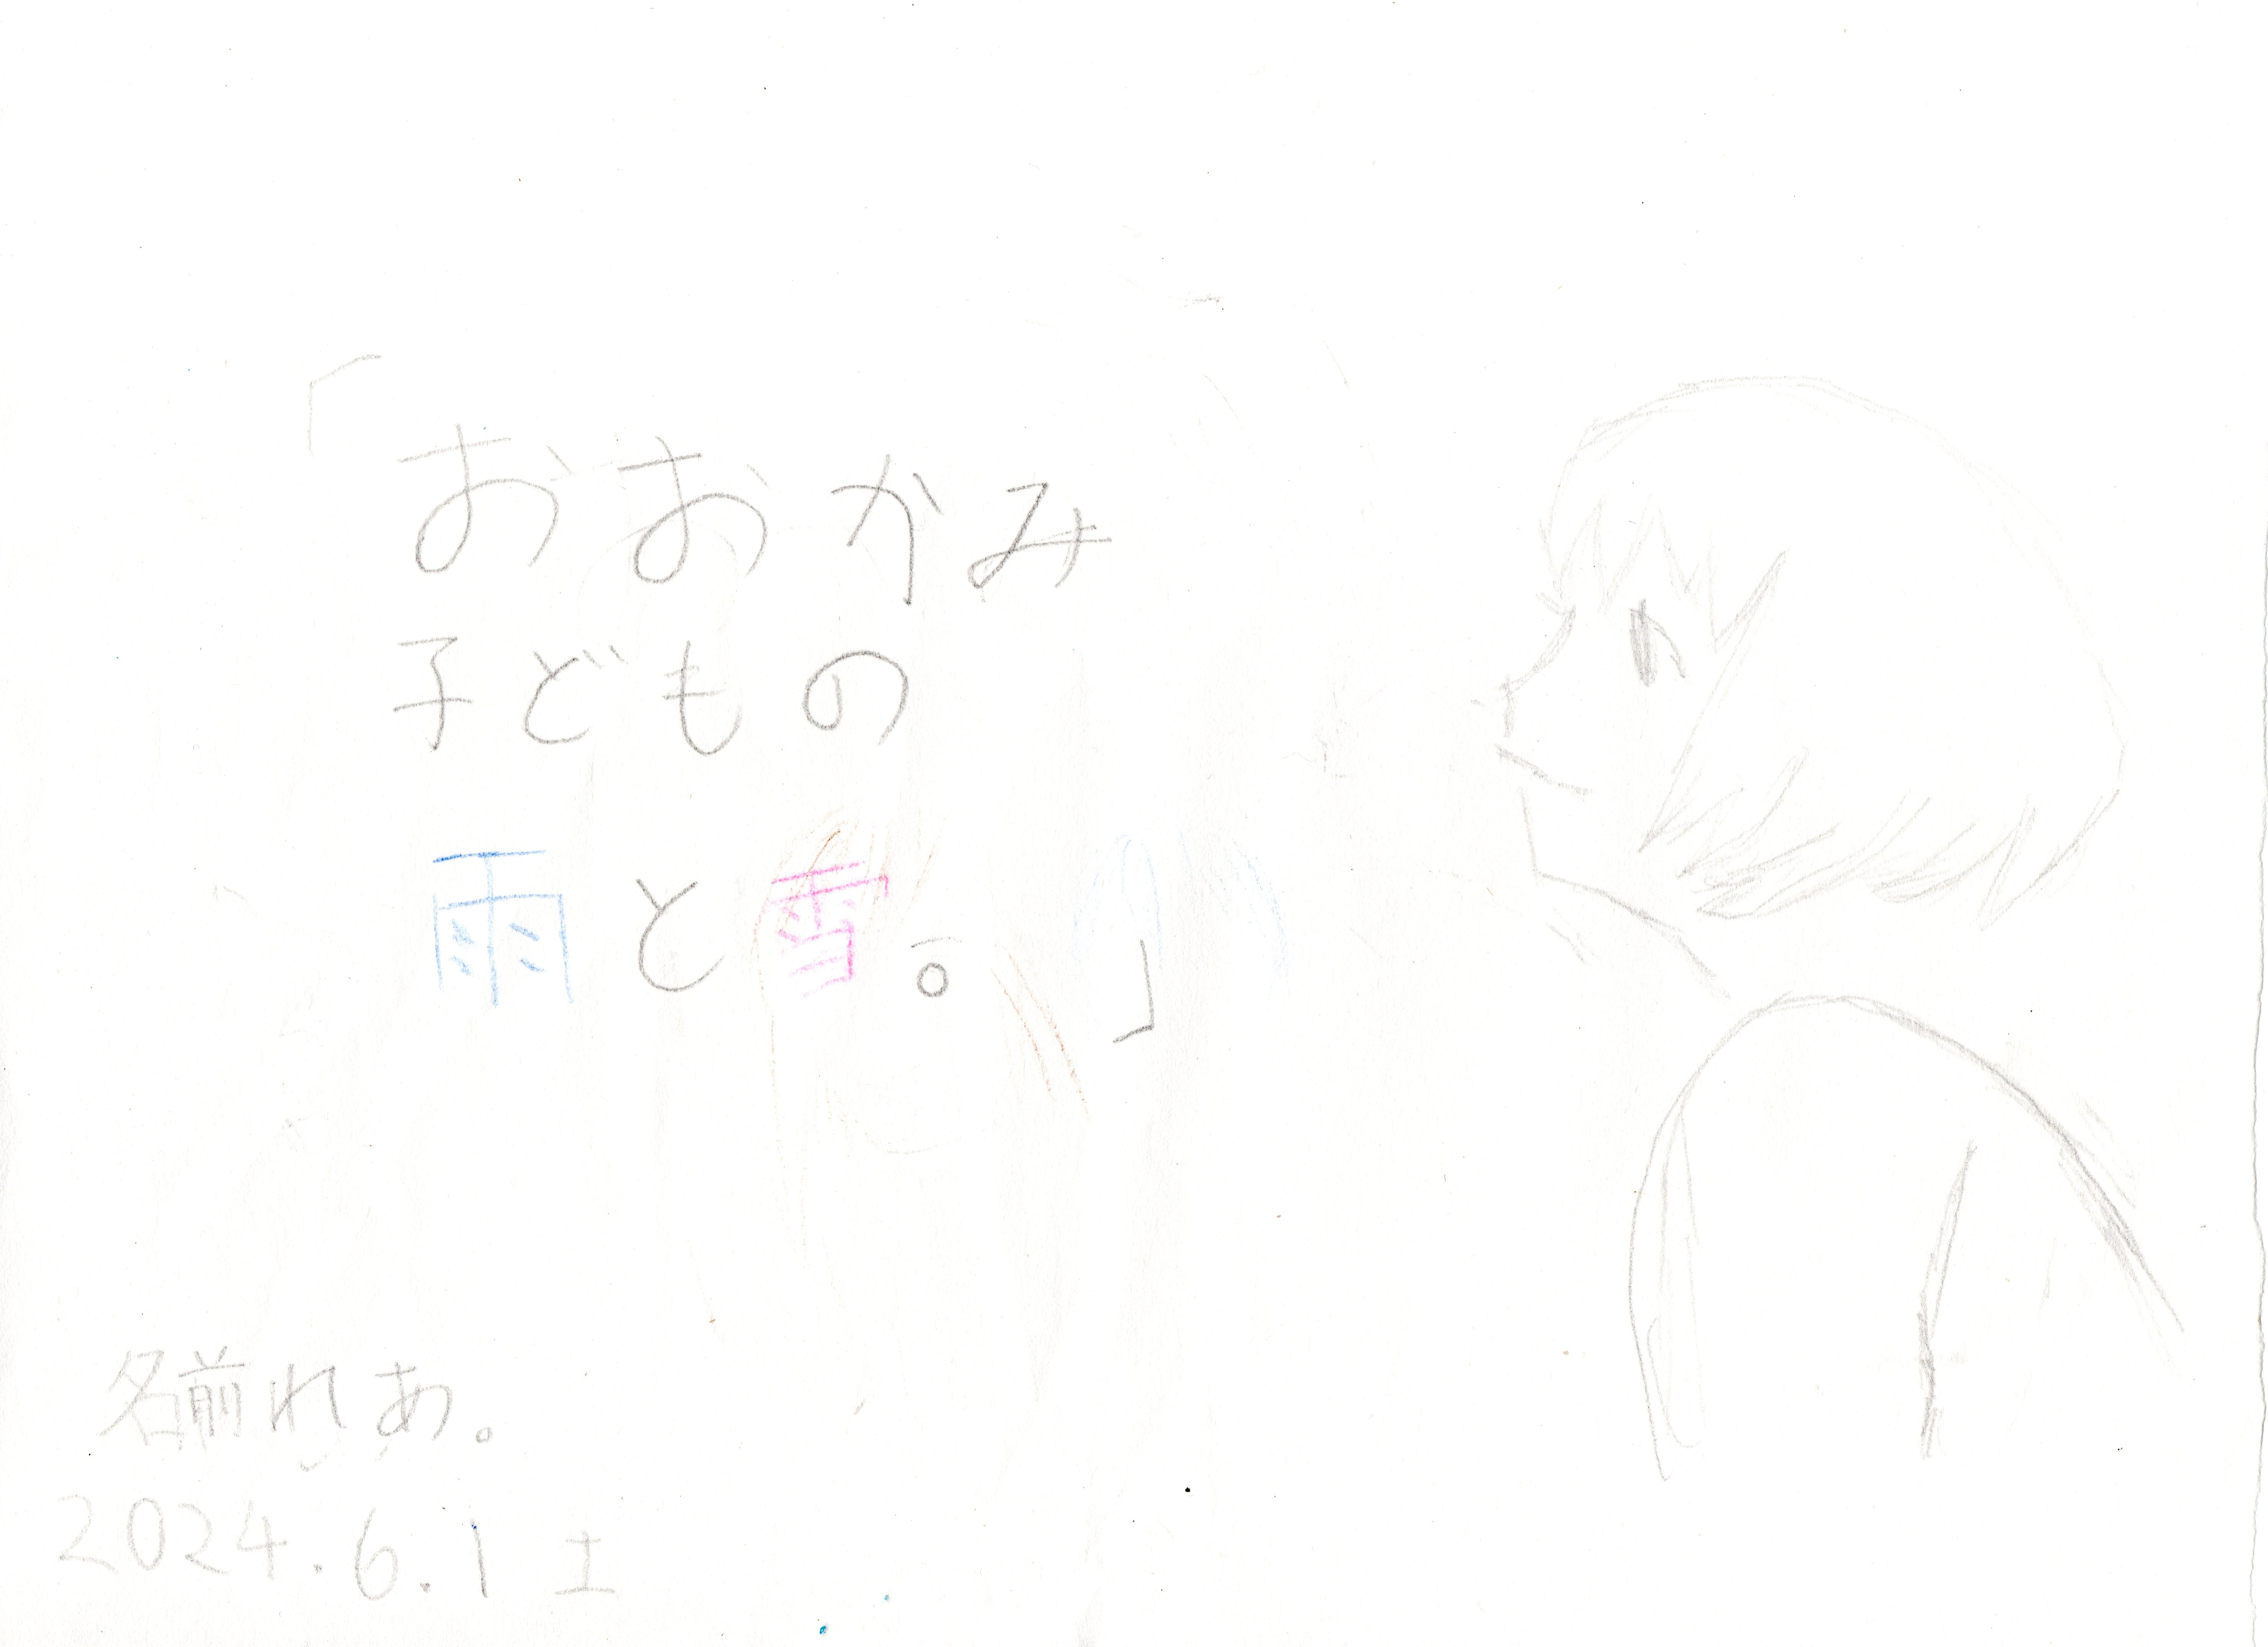 「おおかみ
子どもの
雨と雪。」
名前れあ。
2024.6.1 土